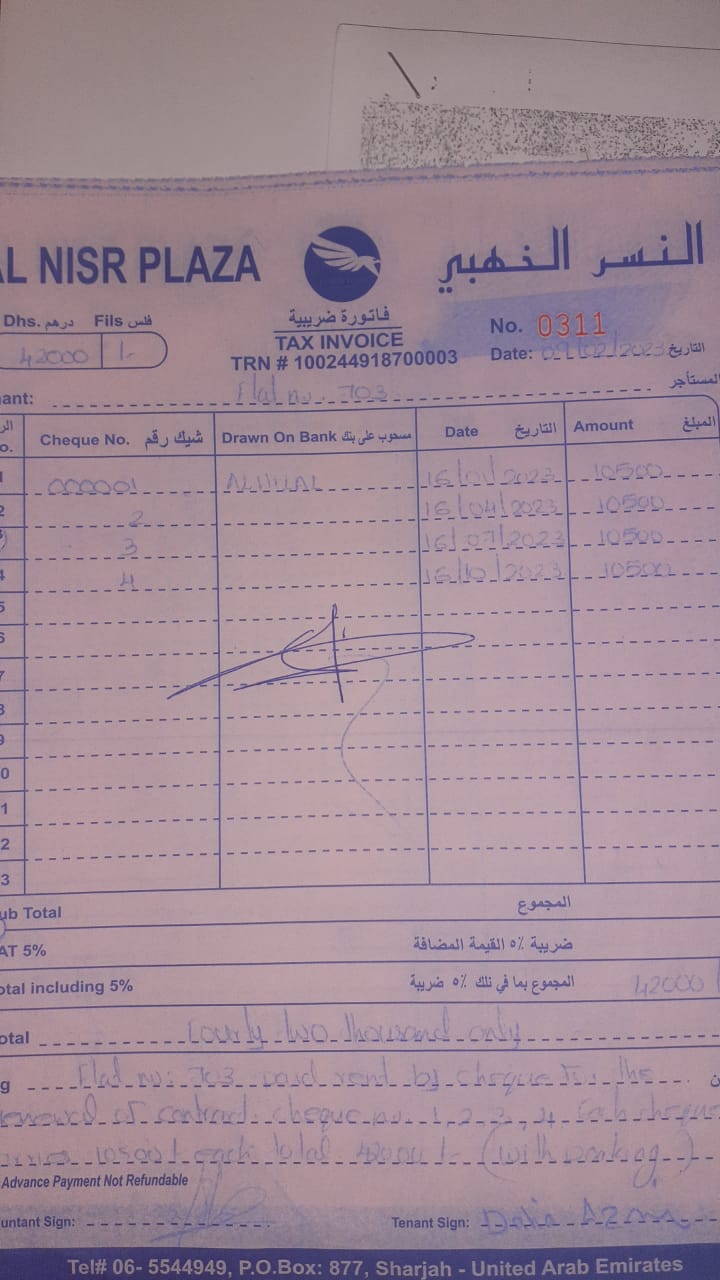 AL NISR PLAZA
النسر الذهبي
Dhs. درهم Fils فلس
42000 /-
فاتورة ضريبية
TAX INVOICE
TRN # 100244918700003
No. 0311
Date: 09/02/2023 التاريخ
ant: Flat no. 703 المستأجر
Cheque No. شيك رقم Drawn On Bank مسحوب على بنك Date التاريخ Amount المبلغ
1 000001 16/01/2023 10500
2 2 16/04/2023 10500
3 3 16/07/2023 10500
4 4 16/10/2023 10500
5
6
7
8
9
0
1
2
3
ub Total المجموع
AT 5% ضريبة ٥٪ القيمة المضافة
otal including 5% المجموع بما في ذلك ٥٪ ضريبة 42000
otal Fourty two thousand only
g Flat no: 703 paid rent by cheque for the
renewal of contract. cheque no. 1, 2, 3, 4. Each cheque
10500/- each total 42000/- (with parking)
Advance Payment Not Refundable
untant Sign:
Tenant Sign: Dalia
Tel# 06- 5544949, P.O.Box: 877, Sharjah - United Arab Emirates